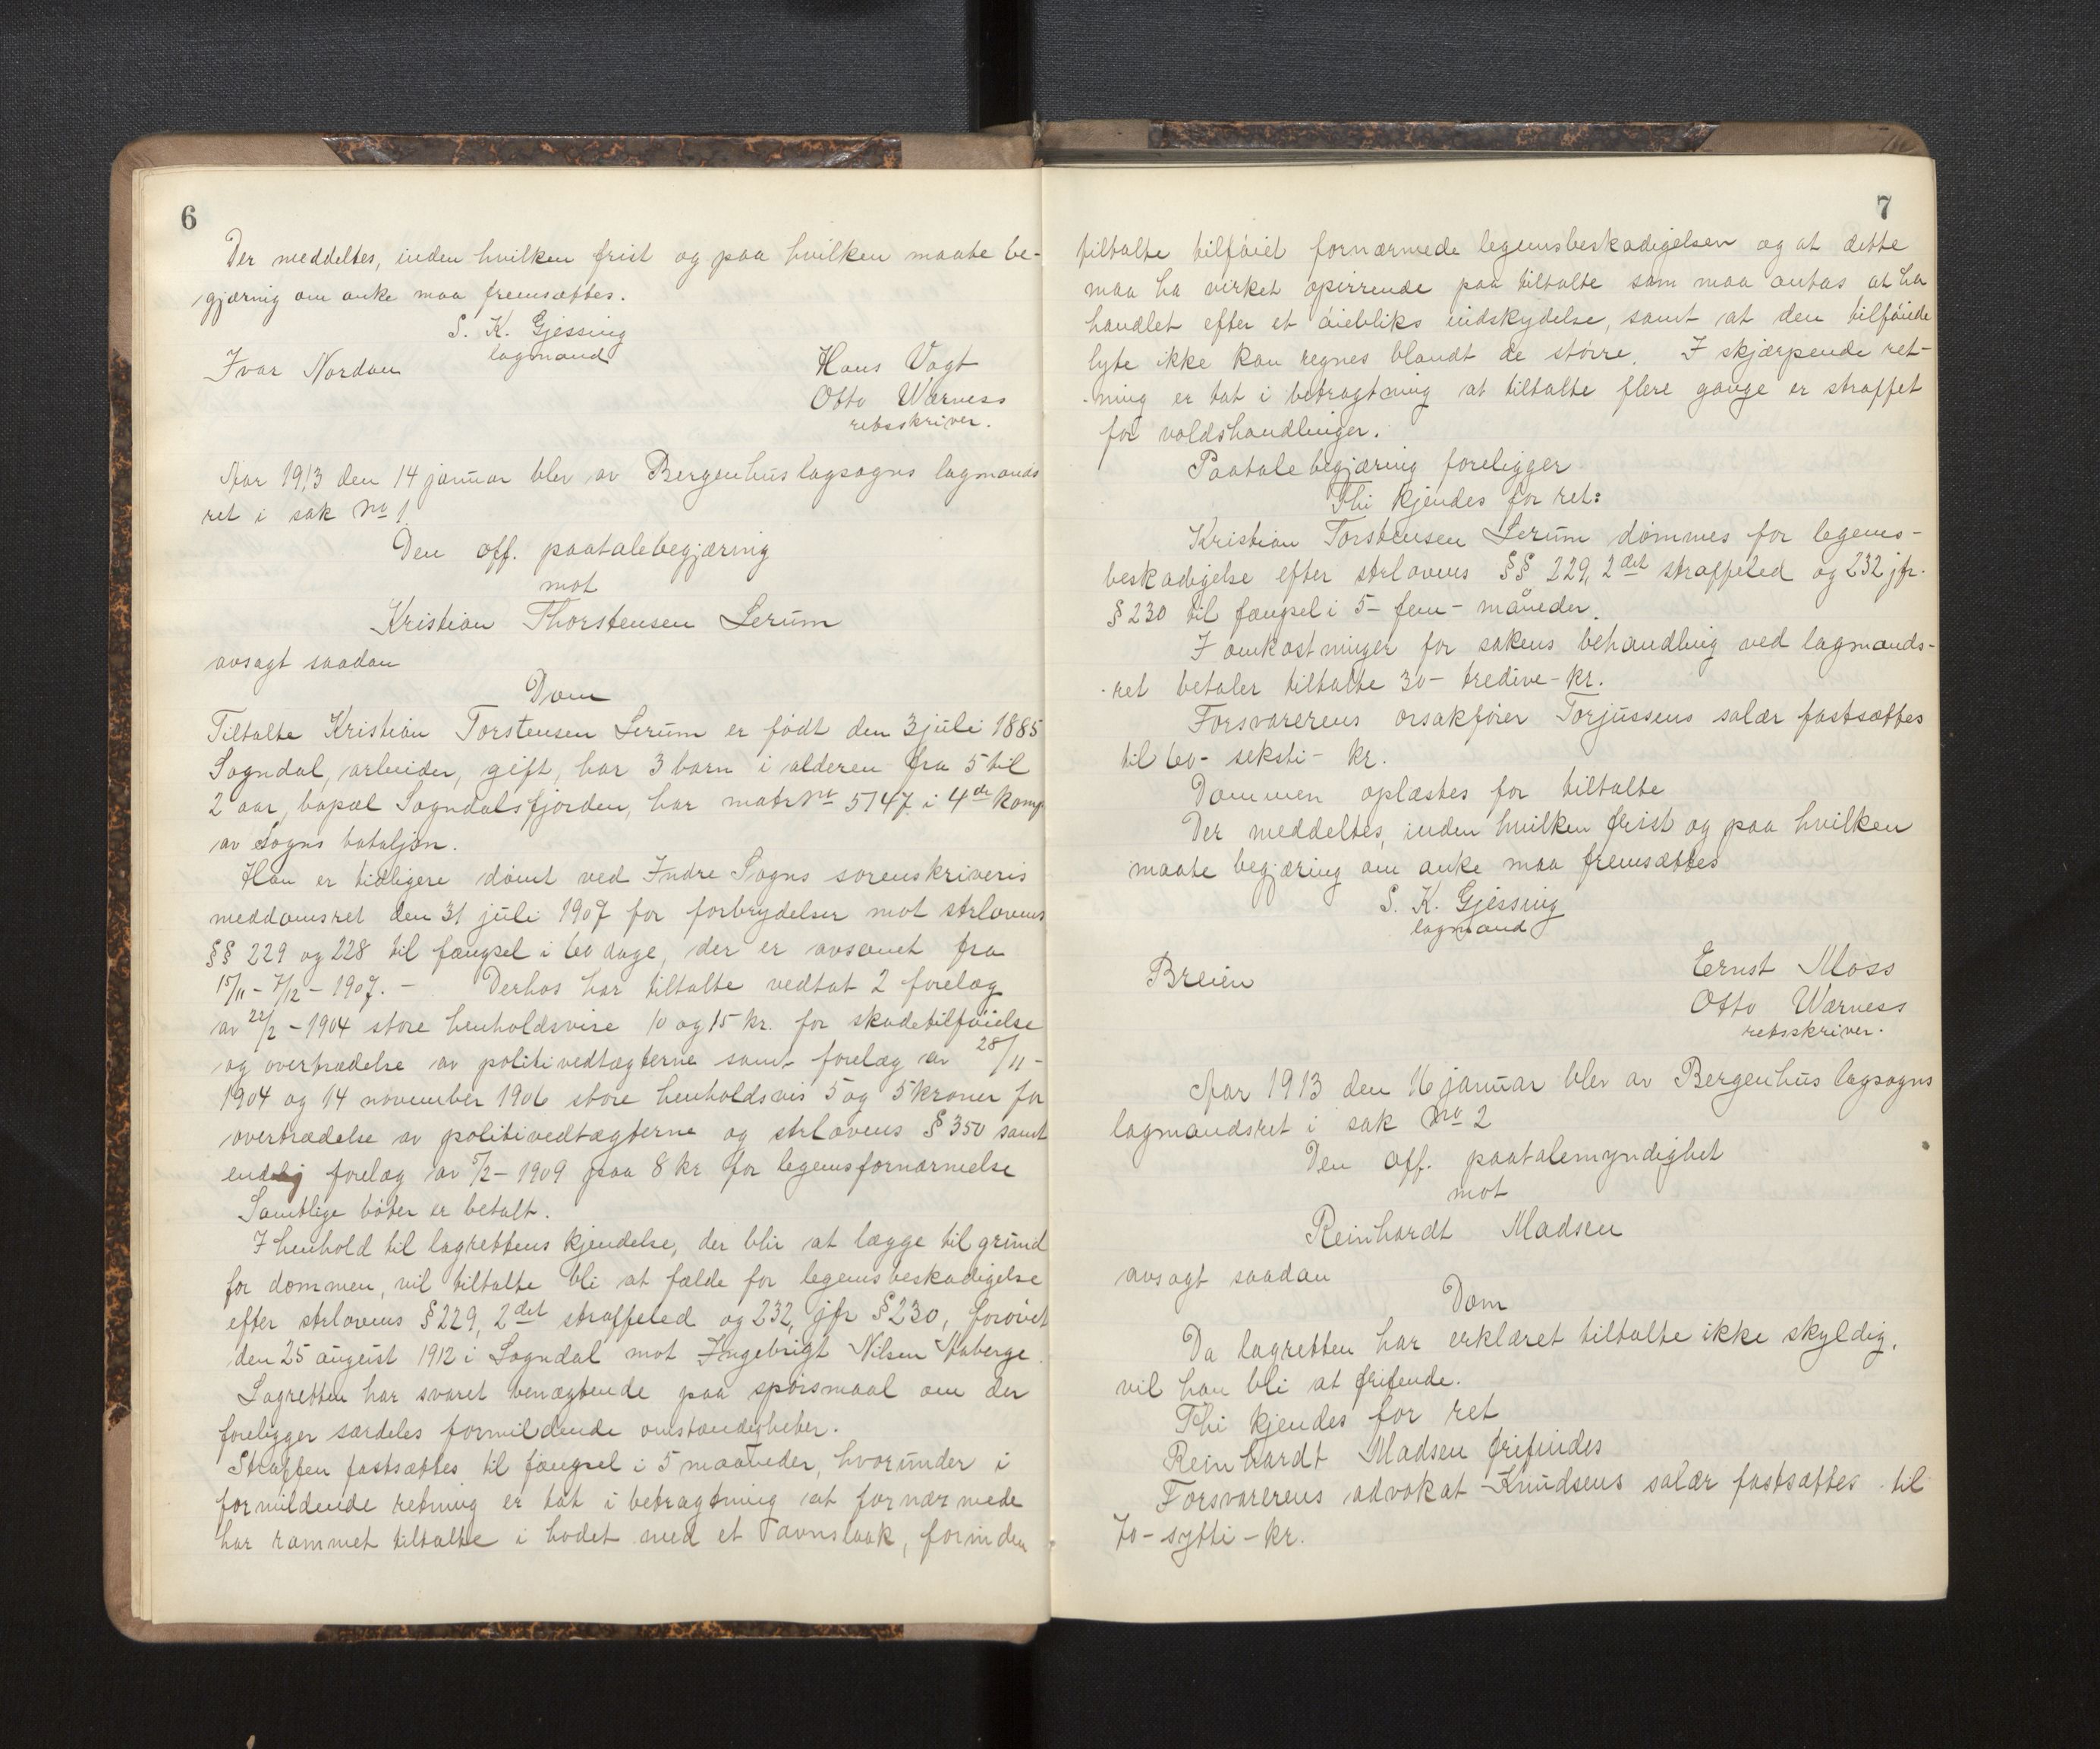 6
Der meddeltes, inden hvilken frist og paa hvilken maate be-
gjæring om anke maa fremsættes.
S. K. Gjessing
lagmand
Ivar Nordan
Hans Vogt
Otto Wærness
retsskriver.
Aar 1913 den 14 januar blev av Bergenhus lagsogns lagmands
ret i sak No 1
Den off. paatalebegjæring
mot
Kristian Thorstensen Lerum
avsagt saadan
Dom
Tiltalte Kristian Torstensen Lerum er født den 3 juli 1885
Sogndal, arbeider, gift, har 3 barn i alderen fra 5 til
2 aar, bopæl Sogndalsfjorden, har matr No 5747 i 4de komp
av Sogns bataljon.
Han er tidligere dømt ved Indre Sogns sorenskriveris
meddomsret den 31 juli 1907 for forbrydelser mot strlovens
§§ 229 og 228 til fængsel i 60 dage, der er avsonet fra
15/11 - 7/12 - 1907. - Derhos har tiltalte vedtat 2 forelæg
av 22/2 - 1904 store henholdsvise 10 og 15 kr. for skadetilføielse
og overtrædelse av politivedtægterne samt forelæg av 28/11 -
1904 og 14 november 1906 store henholdsvis 5 og 5 kroner for
overtrædelse av politivedtægterne og strlovens § 350 samt
endelig forelæg av 5/2 - 1909 paa 8 kr for legemsfornærmelse
Samtlige bøter er betalt.
I henhold til lagrettens kjendelse, der blir at lægge til grund
for dommen, vil tiltalte bli at fælde for legemsbeskadigelse
efter strlovens § 229, 2det straffeled og 232, jfr § 230, forøvet
den 25 august 1912 i Sogndal mot Ingebrigt Nilsen Aaberge.
Lagretten har svaret benægtende paa spørsmaal om der
foreligger særdeles formildende omstændigheter.
Straffen fastsættes til fængsel i 5 maaneder, hvorunder i
formildende retning er tat i betragtning at fornærmede
har rammet tiltalte i hodet med et Tavnstaak, forinden
7
tiltalte tilføiet fornærmede legemsbeskadigelsen og at dette
maa ha virket opirrende paa tiltalte som maa antas at ha
handlet efter et øiebliks indskydelse, samt at den tilføiede
lyte ikke kan regnes blandt de større. I skjærpende ret-
ning er tat i betragtning at tiltalte flere gange er straffet
for voldshandlinger.
Paatalebegjæring foreligger
Thi kjendes for ret:
Kristian Torstensen Lerum dømmes for legems-
beskadigelse efter strlovens §§ 229, 2det straffeled og 232 jfr.
§ 230 til fængsel i 5 - fem - måneder.
I omkostninger for sakens behandling ved lagmands-
ret betaler tiltalte 30 - tredive - kr.
Forsvarerens orsakfører Torjussens salær fastsættes
til 60 - seksti - kr.
Dommen oplæstes for tiltalte
Der meddeltes, inden hvilken frist og paa hvilken
maate begjæring om anke maa fremsættes
S. K. Gjessing
lagmand
Breien
Ernst Moss
Otto Wærness
retsskriver.
Aar 1913 den 16 januar blev av Bergenhus lagsogns
lagmandsret i sak No 2
Den off. paatalemyndighet
mot
Reinhardt Madsen
avsagt saadan
Dom
Da lagretten har erklæret tiltalte ikke skyldig,
vil han bli at frifinde.
Thi kjendes for ret
Reinhardt Madsen frifindes
Forsvarerens advokat Knudsens salær fastsættes til
70 - sytti - kr.